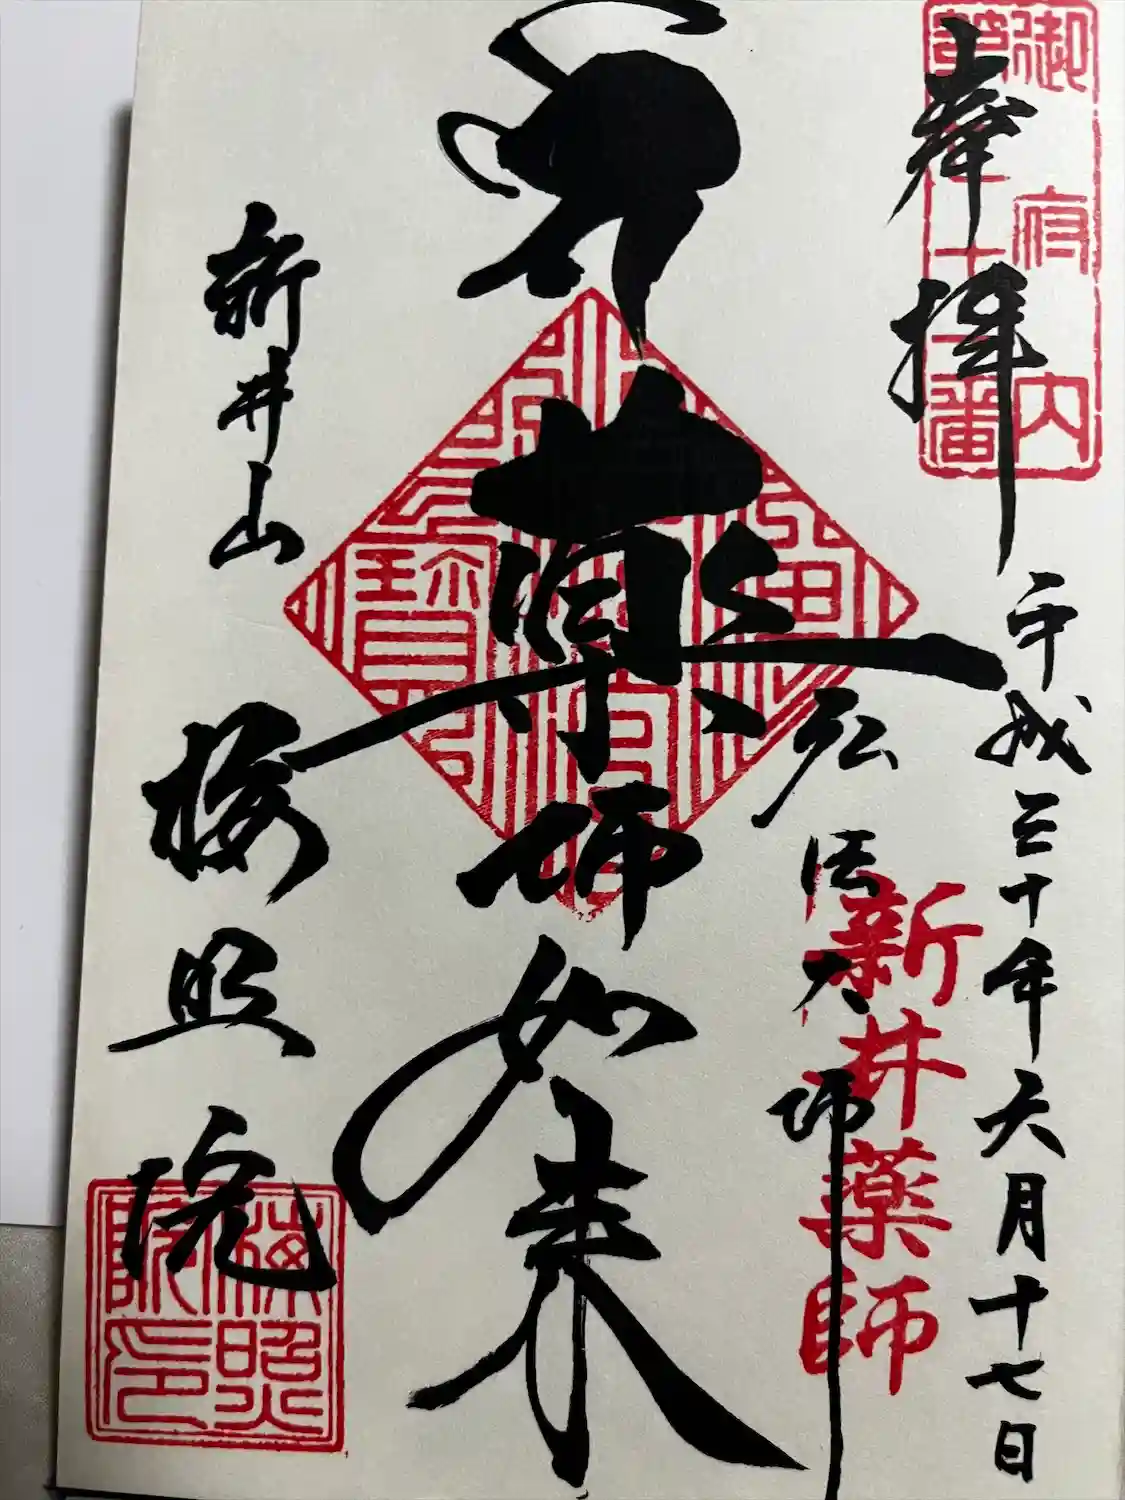 御府内
第七十一番
奉拝
平成三十年六月十七日
新井薬師
弘法大師
薬師如来
新井山
梅照院
梅照
院印